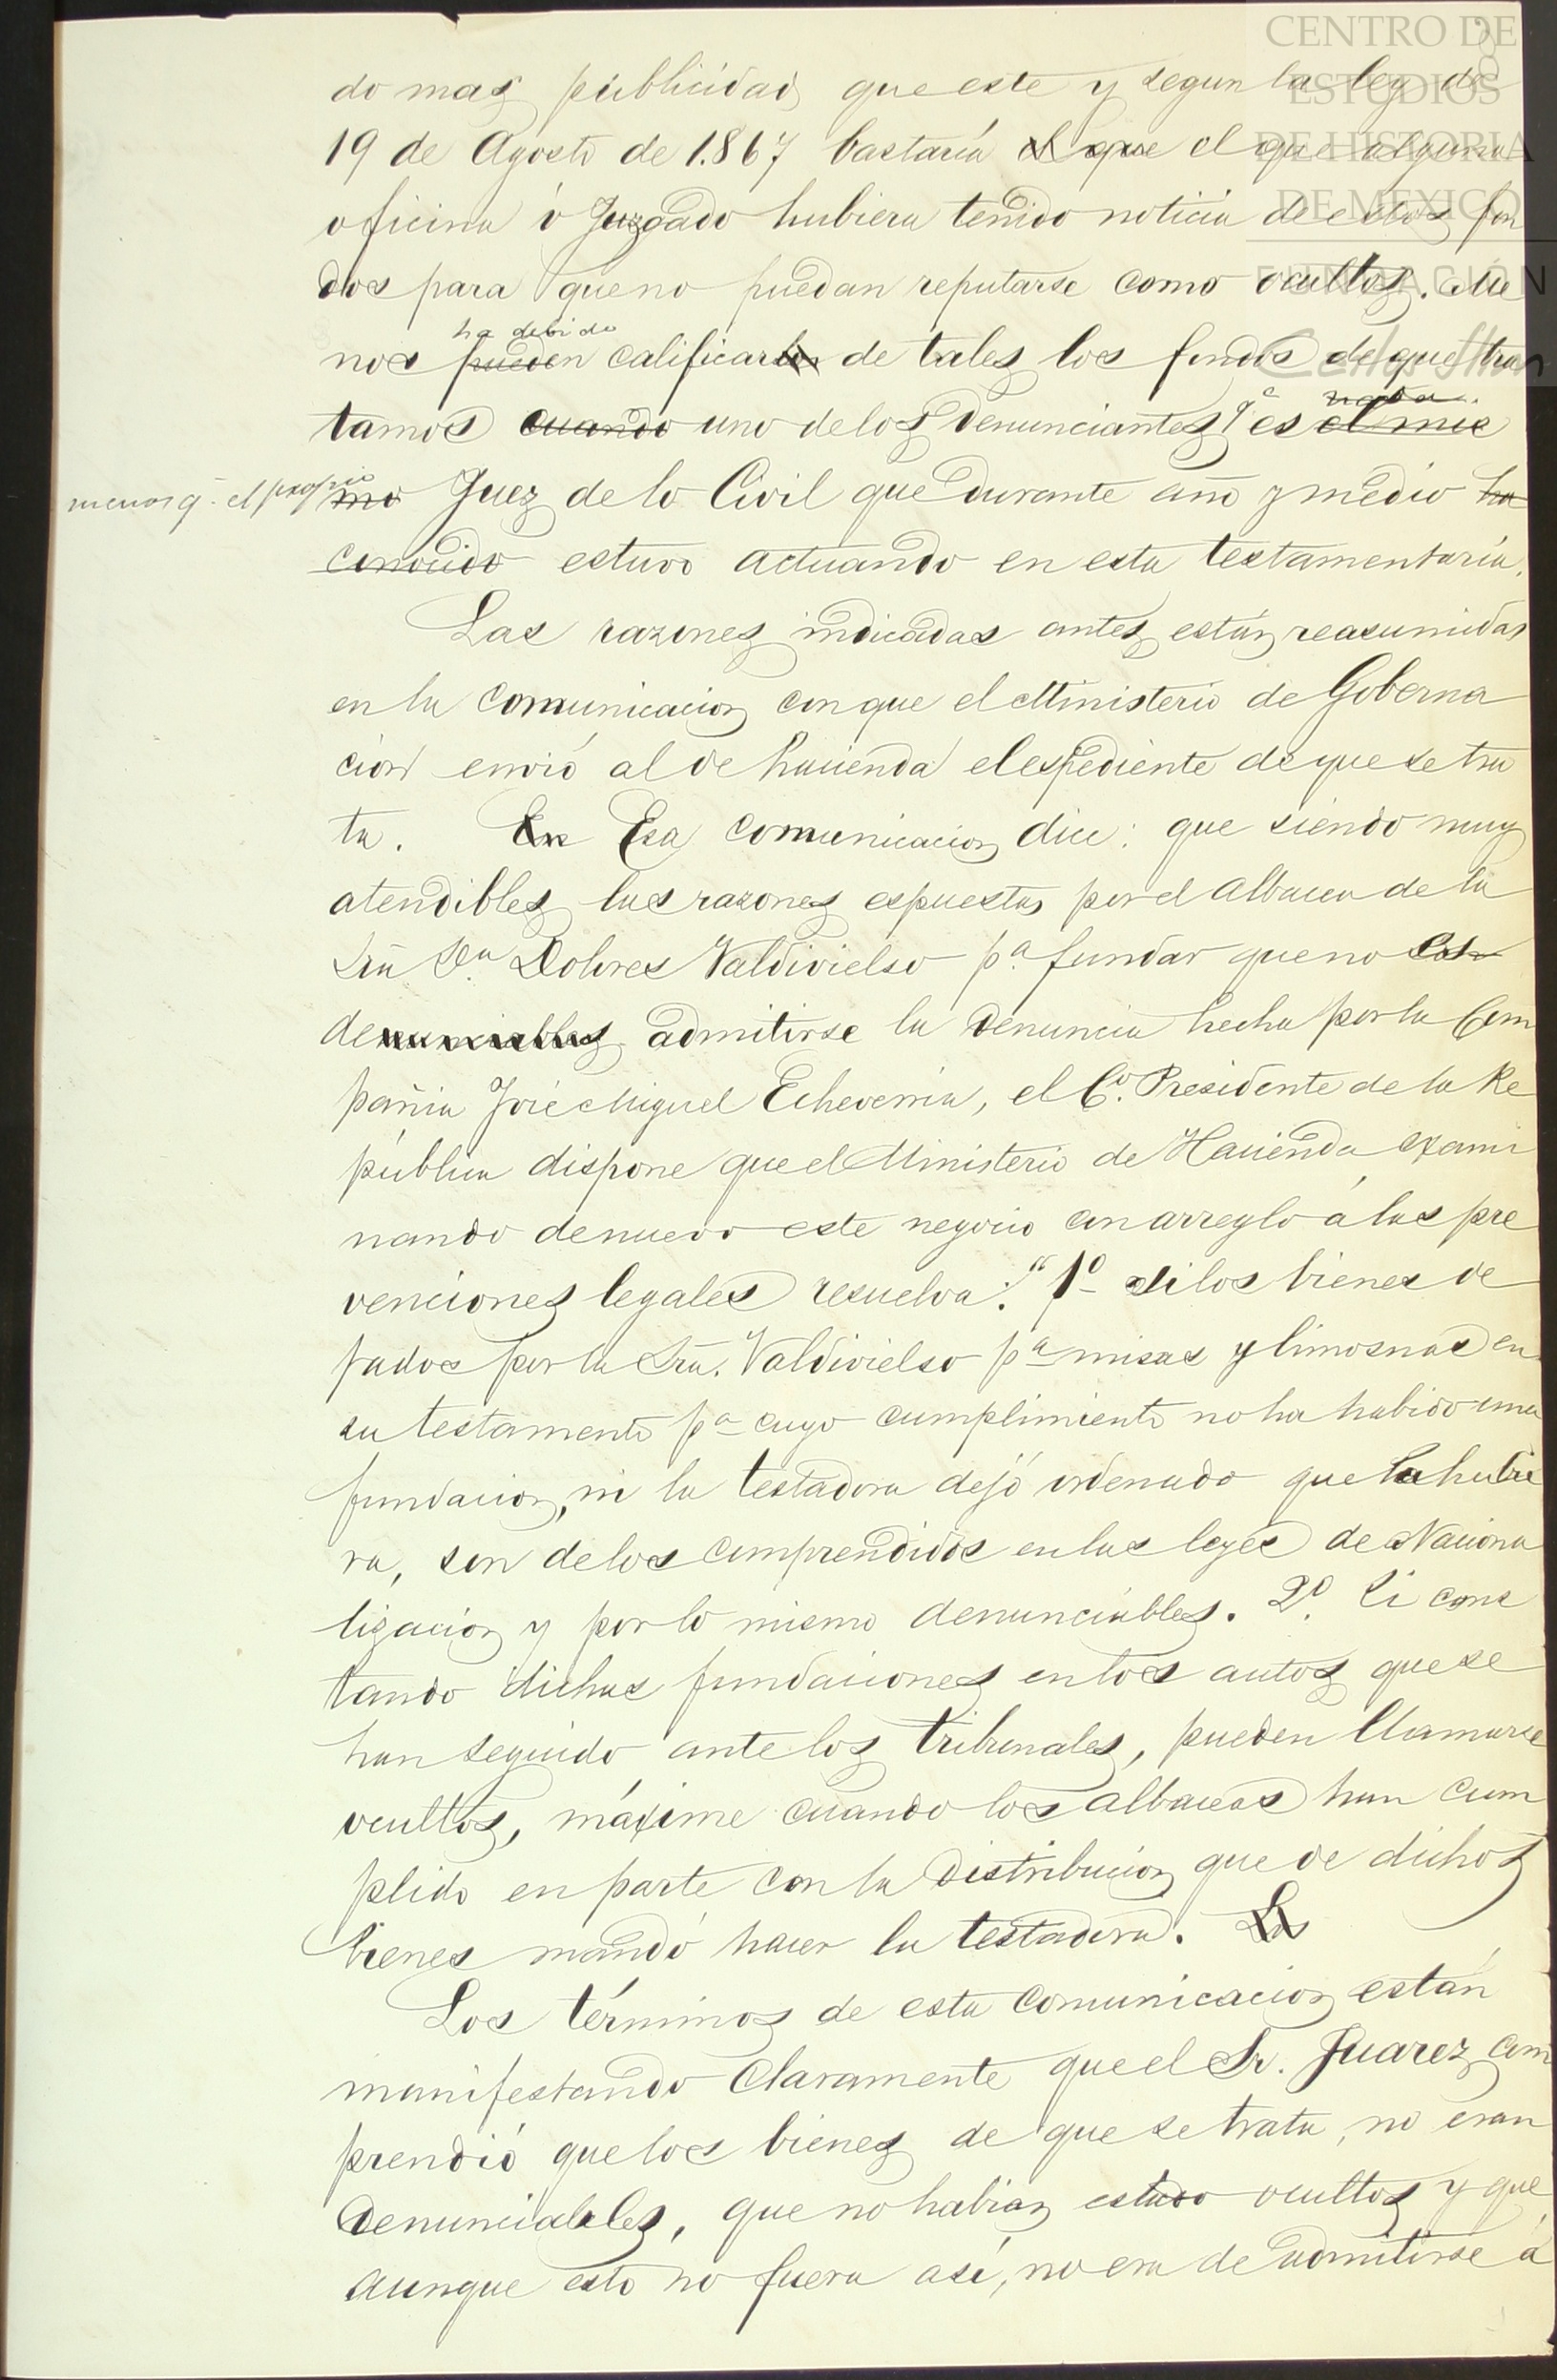 CENTRO DE
ESTUDIOS
DE HISTORIA
DE MEXICO
FUNDACIÓN
do mas publicidad que este y segun la ley de
19 de Agosto de 1.867 bastaría el que el que alguna
oficina ó Juzgado hubiera tenido noticia de estos fon
dos para que no puedan reputarse como ocultos. Me
ha debido
nos pueden calificarlos de tales los fondos de que tra
nada
tamos cuando uno de los denunciantes q.e es el mis
menos q. el propio
mo Juez de lo Civil que durante año y medio ha
conocido estuvo actuando en esta testamentaría.
Las razones indicadas antes están reasumidas
en la comunicacion con que el Ministerio de Goberna
cion envió al de hacienda el espediente de que se tra
ta. En Esa comunicacion dice: que siendo muy
atendibles las razones espuestas por el albacea de la
Sra D.a Dolores Valdivielso p.a fundar que no
denunciables admitirse la denuncia hecha por la Com
pañia José Miguel Echeverria, el C.o Presidente de la Re
pública dispone que el Ministerio de Hacienda exami
nando de nuevo este negocio con arreglo á las pre
venciones legales resuelva: "1o Si los bienes de
jados por la Sra. Valdivielso p.a misas y limosnas en
su testamento p.a cuyo cumplimiento no ha habido una
fundacion, ni la testadora dejó ordenado que la hubie
ra, son de los comprendidos en las leyes de Naciona
lizacion y por lo mismo denunciables. 2o. Si cons
tando dichas fundaciones en los autos que se
han seguido ante los tribunales, pueden llamarse
ocultos, máxime cuando los albaceas han cum
plido en parte con la distribucion que de dichos
bienes mandó hacer la testadora. Los
Los términos de esta comunicacion están
manifestando claramente que el Sr. Juarez com
prendió que los bienes de que se trata, no eran
denunciables, que no habian estado ocultos y que
aunque esto no fuera así, no era de admitirse á